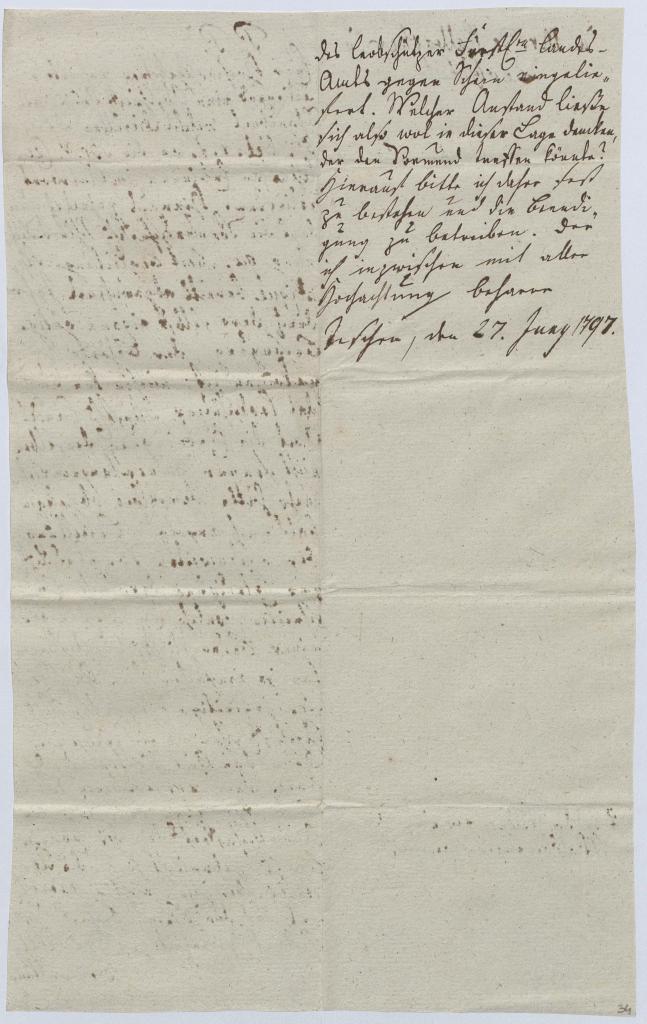 des Leobschützer Fürstl.en Landes-
Amts gegen Schein eingelie-
fert. Welcher Anstand ließe
sich also wol in dieser Lage denken,
der den Vormund treffen könnte?
Hierauf bitte ich daher fest
zu bestehen und die Beendi-
gung zu betreiben. Der
ich inzwischen mit aller
Hochachtung beharre
Teschen, den 27. Juny 1797.
34